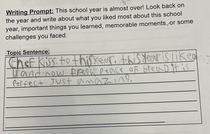 Writing Prompt: This school year is almost over! Look back on
the year and write about what you liked most about this school
year, important things you learned, memorable moments, or some
challenges you faced.
Topic Sentence:
Chef kiss to this year, this year is like a
brand new fresh peace of bread It is
perfect just amazing.